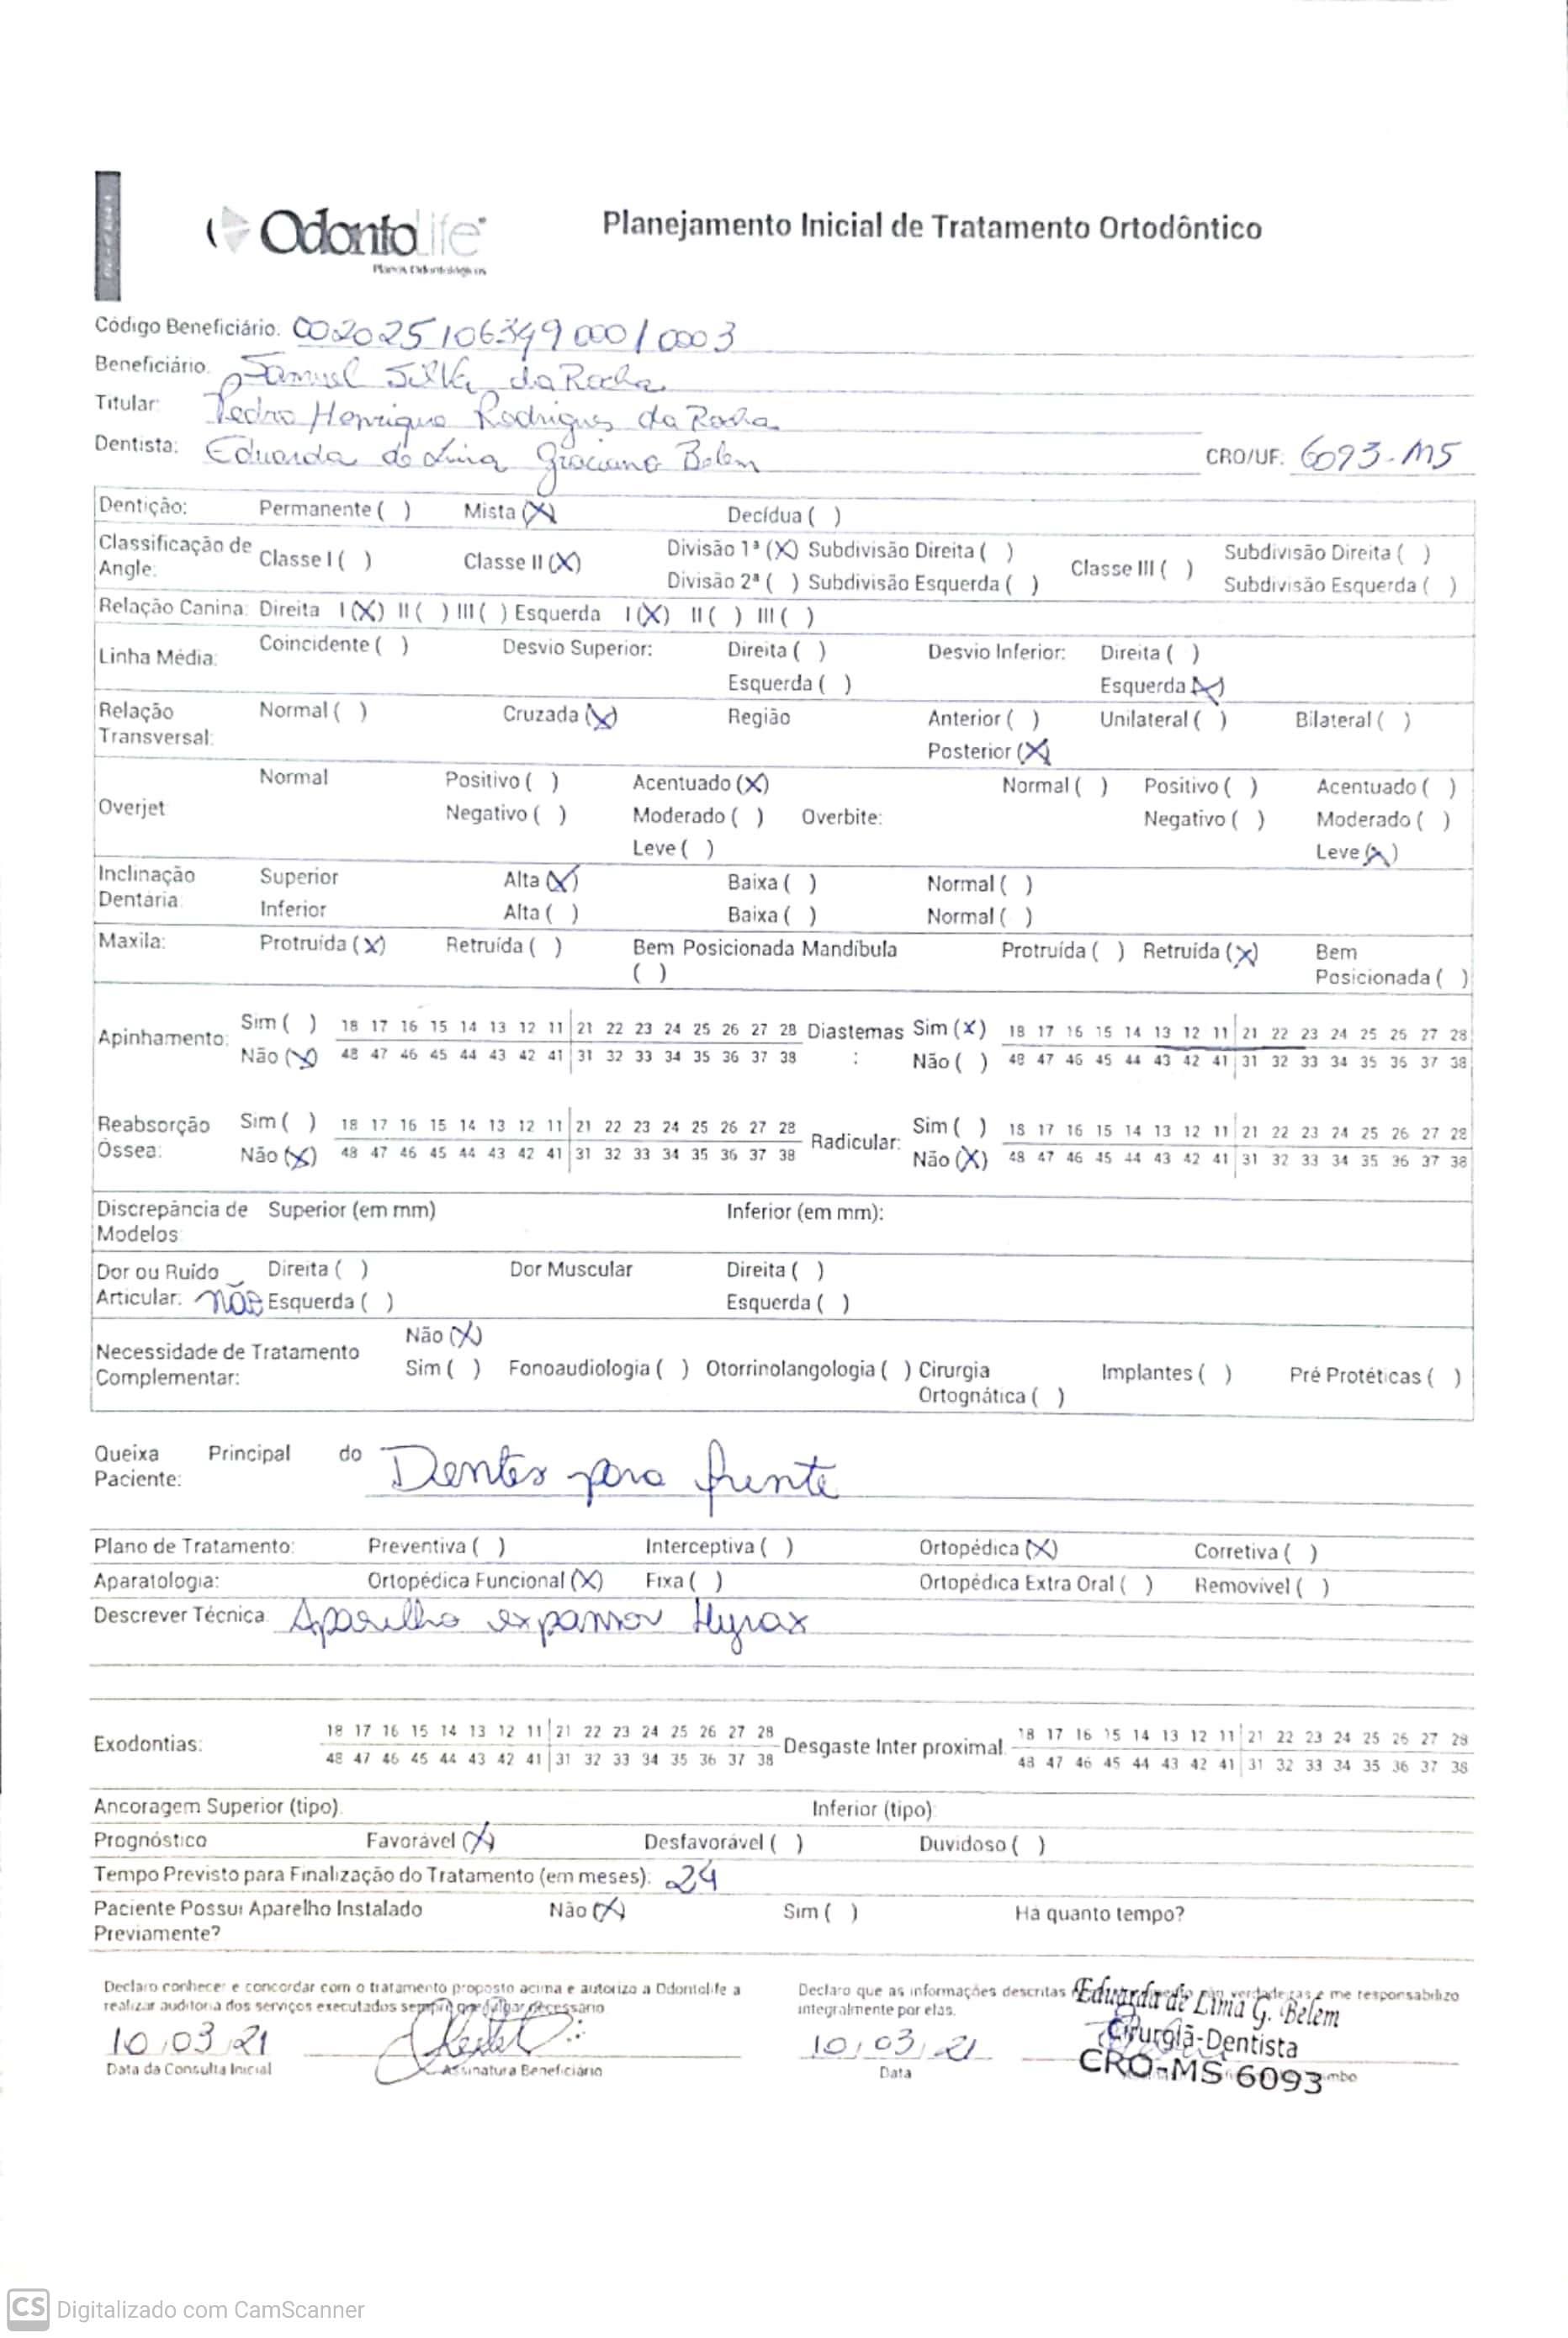 OdontoLife®
Planos Odontológicos
Planejamento Inicial de Tratamento Ortodôntico
Código Beneficiário: 002025106349000/0003
Beneficiário: Samuel Silva da Rocha
Titular: Pedro Henrique Rodrigues da Rocha
Dentista: Eduarda de Lima Graciano Belem CRO/UF: 6093-MS
Dentição: Permanente ( ) Mista (X) Decídua ( )
Classificação de Angle: Classe I ( ) Classe II (X) Divisão 1ª (X) Subdivisão Direita ( ) Classe III ( ) Subdivisão Direita ( )
Divisão 2ª ( ) Subdivisão Esquerda ( ) Subdivisão Esquerda ( )
Relação Canina: Direita I (X) II ( ) III ( ) Esquerda I (X) II ( ) III ( )
Linha Média: Coincidente ( ) Desvio Superior: Direita ( ) Desvio Inferior: Direita ( )
Esquerda ( ) Esquerda (X)
Relação Transversal: Normal ( ) Cruzada (X) Região Anterior ( ) Unilateral ( ) Bilateral ( )
Posterior (X)
Overjet Normal Positivo ( ) Acentuado (X) Normal ( ) Positivo ( ) Acentuado ( )
Negativo ( ) Moderado ( ) Overbite: Negativo ( ) Moderado ( )
Leve ( ) Leve (X)
Inclinação Dentária Superior Alta (X) Baixa ( ) Normal ( )
Inferior Alta ( ) Baixa ( ) Normal ( )
Maxila: Protruída (X) Retruída ( ) Bem Posicionada Mandíbula Protruída ( ) Retruída (X) Bem
( ) Posicionada ( )
Apinhamento: Sim ( ) 18 17 16 15 14 13 12 11 21 22 23 24 25 26 27 28 Diastemas Sim (X) 18 17 16 15 14 13 12 11 21 22 23 24 25 26 27 28
Não (X) 48 47 46 45 44 43 42 41 31 32 33 34 35 36 37 38 : Não ( ) 48 47 46 45 44 43 42 41 31 32 33 34 35 36 37 38
Reabsorção Óssea: Sim ( ) 18 17 16 15 14 13 12 11 21 22 23 24 25 26 27 28 Radicular: Sim ( ) 18 17 16 15 14 13 12 11 21 22 23 24 25 26 27 28
Não (X) 48 47 46 45 44 43 42 41 31 32 33 34 35 36 37 38 Não (X) 48 47 46 45 44 43 42 41 31 32 33 34 35 36 37 38
Discrepância de Superior (em mm) Inferior (em mm):
Modelos:
Dor ou Ruído Direita ( ) Dor Muscular Direita ( )
Articular: NÃO Esquerda ( ) Esquerda ( )
Não (X)
Necessidade de Tratamento Complementar: Sim ( ) Fonoaudiologia ( ) Otorrinolangologia ( ) Cirurgia Ortognática ( ) Implantes ( ) Pré Protéticas ( )
Queixa Principal do Paciente: Dentes para frente
Plano de Tratamento: Preventiva ( ) Interceptiva ( ) Ortopédica (X) Corretiva ( )
Aparatologia: Ortopédica Funcional (X) Fixa ( ) Ortopédica Extra Oral ( ) Removível ( )
Descrever Técnica: Aparelho expansor Hyrax
Exodontias: 18 17 16 15 14 13 12 11 21 22 23 24 25 26 27 28 Desgaste Inter proximal: 18 17 16 15 14 13 12 11 21 22 23 24 25 26 27 28
48 47 46 45 44 43 42 41 31 32 33 34 35 36 37 38 48 47 46 45 44 43 42 41 31 32 33 34 35 36 37 38
Ancoragem Superior (tipo): Inferior (tipo):
Prognóstico Favorável (X) Desfavorável ( ) Duvidoso ( )
Tempo Previsto para Finalização do Tratamento (em meses): 24
Paciente Possui Aparelho Instalado Previamente? Não (X) Sim ( ) Há quanto tempo?
Declaro conhecer e concordar com o tratamento proposto acima e autorizo a Odontolife a
realizar auditoria dos serviços executados sempre que julgar necessário
Declaro que as informações descritas são verdadeiras e me responsabilizo
integralmente por elas.
10/03/21
Data da Consulta Inicial
Assinatura Beneficiário
10/03/21
Data
Eduarda de Lima G. Belem
Cirurgiã-Dentista
CRO-MS 6093
CS Digitalizado com CamScanner